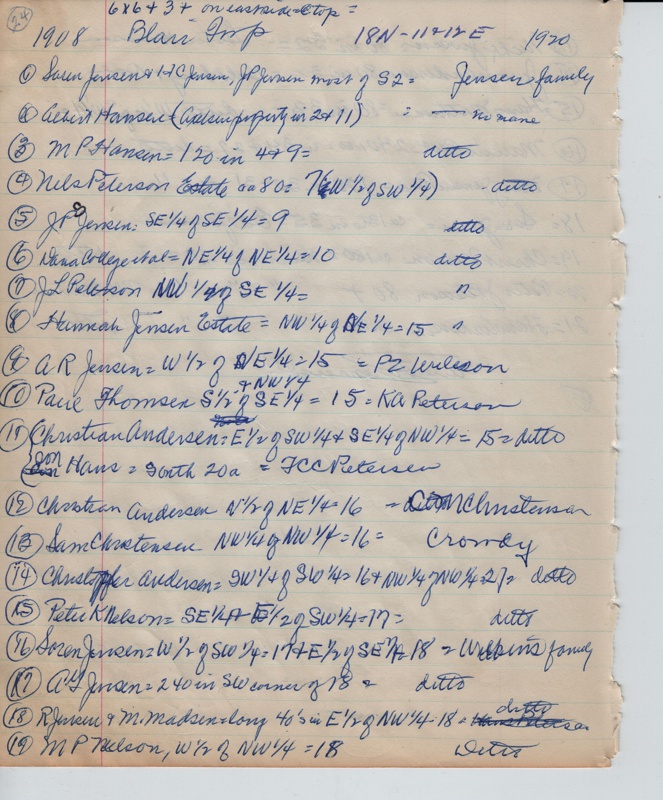 24
6 x 6 + 3 + on east side = top =
1908 Blair Twp 18N - 11 + 12 E 1920
① Soren Jensen + H C Jensen, J P Jensen most of S2 = Jensen family
② Albert Hansen = ( property in 2 + 11) = no name
③ M P Hansen = 120 in 4 + 9 = ditto
④ Nels Peterson Estate 80 = 7 (W 1/2 of SW 1/4) - ditto
⑤ J P Jensen: SE 1/4 of SE 1/4 = 9 ditto
⑥ Dana College = NE 1/4 of NE 1/4 = 10 ditto
⑦ J L Peterson NW 1/4 of SE 1/4 = "
⑧ Hannah Jensen Estate = NW 1/4 of NE 1/4 = 15 "
⑨ A R Jensen = W 1/2 of NE 1/4 = 15 = P Z Wilkson
+ NW 1/4
⑩ Paul Thomsen S 1/2 of SE 1/4 = 15 = K A Peterson
⑪ Christian Andersen = E 1/2 of SW 1/4 + SE 1/4 of NW 1/4 = 15 = ditto
son Hans = North 20a = F C C Petersen
⑫ Christian Andersen N 1/2 of NE 1/4 = 16 = M Christensen
⑬ Sam Christensen NW 1/4 of NW 1/4 = 16 = Crowdy
⑭ Christoffer Andersen = SW 1/4 of SW 1/4 = 16 + NW 1/4 of NW 1/4 = 21 = ditto
⑮ Peter K Nelson = SE 1/4 + E 1/2 of SW 1/4 = 17 = ditto
⑯ Soren Jensen = W 1/2 of SW 1/4 = 17 + E 1/2 of SE 1/4 = 18 = Wilkins family
⑰ A G Jensen = 240 in SW corner of 18 = ditto
⑱ R Jensen + M. Madsen = long 40's in E 1/2 of NW 1/4 - 18 = ditto
⑲ M P Nelson, W 1/2 of NW 1/4 = 18 Ditto